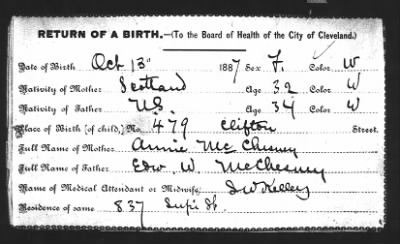 RETURN OF A BIRTH.—(To the Board of Health of the City of Cleveland.)
Date of Birth Oct 13" 1887 Sex F. Color W
Nativity of Mother Scotland Age 32 Color W
Nativity of Father U.S. Age 34 Color W
Place of Birth (of child,) No. 479 Clifton Street.
Full Name of Mother Annie McChesney
Full Name of Father Edw. W. McChesney
Name of Medical Attendant or Midwife, Kelley
Residence of same 837